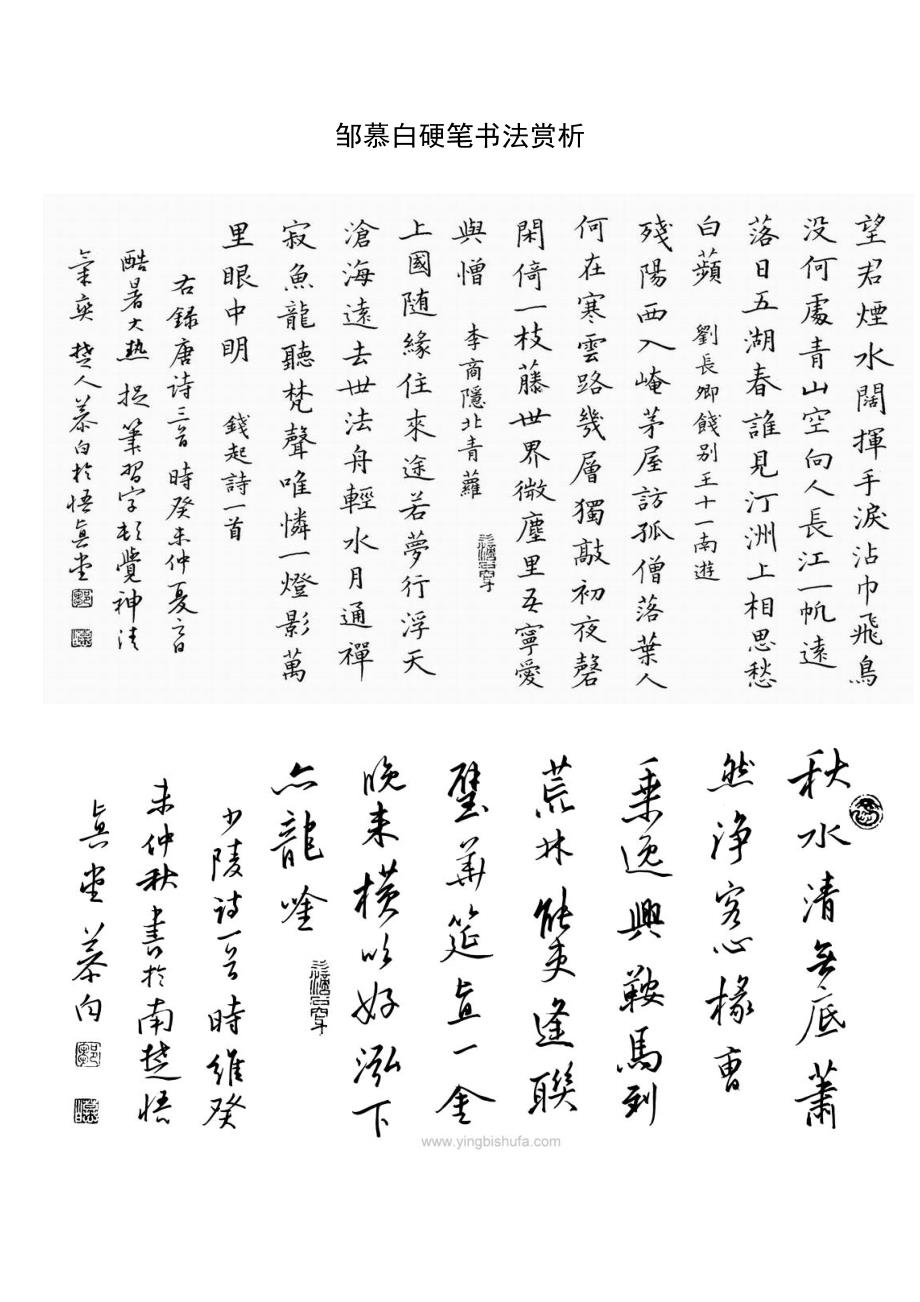 邹慕白硬笔书法赏析
望君煙水闊揮手淚沾巾飛鳥
没何處青山空向人長江一帆遠
落日五湖春誰見汀洲上相思愁
白蘋 劉長卿餞别王十一南遊
殘陽西入崦茅屋訪孤僧落葉人
何在寒雲路幾層獨敲初夜磬
閑倚一枝藤世界微塵里吾寧愛
與憎 李商隱北青蘿
上國随緣住來途若夢行浮天
滄海遠去世法舟輕水月通禪
寂魚龍聽梵聲唯憐一燈影萬
里眼中明 錢起詩一首
右録唐詩三首時癸未仲夏言日
酷暑大熱捉筆習字頓覺神清
氣爽 楚人慕白於悟真堂
秋水清無底蕭
然净客心椽曹
乘逸興鞍馬到
荒林能吏逢聯
璧華筵直一金
晚来横吹好泓下
亦龍唫
少陵诗一首時維癸
未仲秋書於南楚悟
真堂慕白
www.yingbishufa.com